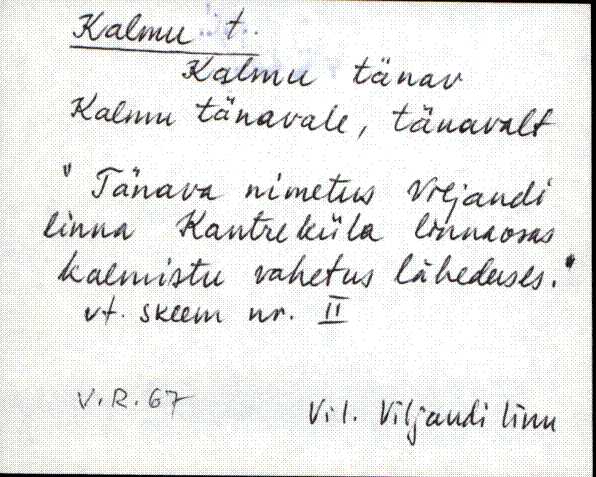 Kalmu t.
Kalmu tänav
Kalmu tänavale, tänavalt
"Tänava nimetus Viljandi
linna Kantreküla linnaosas
kalmistu vahetus läheduses."
vt. skeem nr. II
V.R.67
Vil. Viljandi linn